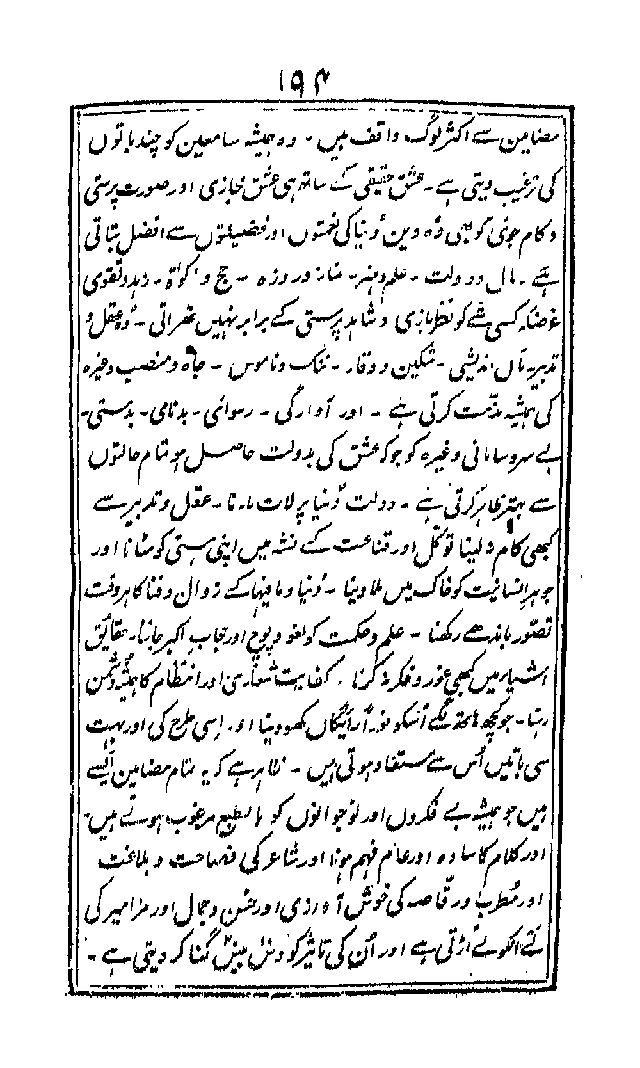 ۱۹۴
مضامین سے اکثر لوگ واقف ہیں ۔ وہ ہمیشہ سامعین کو چند باتوں
کی ترغیب دیتی ہے ۔ عشق حقیقی کے ساتھ ہی عشق مجازی اور صورت پرستی
و کام جوئی کو بھی وہ دین و دنیا کی نعمتوں اور فضیلتوں سے افضل بتاتی
ہے ۔ مال و دولت ۔ علم و ہنر ۔ نماز و روزہ ۔ حج و زکوٰۃ ۔ زہد و تقویٰ
غرضکہ کسی شے کو نظر بازی و شاہد پرستی کے برابر نہیں ٹھہراتی ۔ وہ عقل و
تدبیر مآل اندیشی ۔ تمکین و وقار ۔ ننگ و ناموس ۔ جاہ و منصب وغیرہ
کی ہمیشہ مذمت کرتی ہے ۔ اور آوارگی ۔ رسوائی ۔ بدنامی ۔ بدمستی ۔
بے سروسامانی وغیرہ کو جو کہ عشق کی بدولت حاصل ہو تمام حالتوں
سے بہتر ظاہر کرتی ہے ۔ دولت دنیا پر لات مارنا ۔ عقل و تدبیر سے
کبھی کام نہ لینا توکل اور قناعت کے نشہ میں اپنی ہستی کو مٹانا اور
جوہر انسانیت کو خاک میں ملا دینا ۔ دُنیا و مافیہا کے زوال و فنا کا ہر وقت
تصور باندھے رکھنا ۔ علم و حکمت کو لغو و پوچ اور حجاب اکبر جاننا ۔ حقایق
اشیاء میں کبھی غور و فکر نہ کرنا ۔ کفایت شعاری اور انتظام کا ہمیشہ دشمن
رہنا ۔ جو کچھ ہاتھ لگے اُسکو فوراً رائیگاں کھو دینا اور اسی طرح کی اور بہت
سی باتیں اُس سے مستفاد ہوتی ہیں ۔ ظاہر ہے کہ یہ تمام مضامین ایسے
ہیں جو ہمیشہ بے فکروں اور نوجوانوں کو بالطبع مرغوب ہوتے ہیں ۔
اور کلام کا سادہ اور عام فہم ہونا اور شاعر کی فصاحت و بلاغت
اور مُطرب و رقاصہ کی خوش آوازی اور حسن و جمال اور مزامیر کی
لَے اُنکو لے اُڑتی ہے اور اُن کی تاثیر کو دس بیس گنا کر دیتی ہے ۔